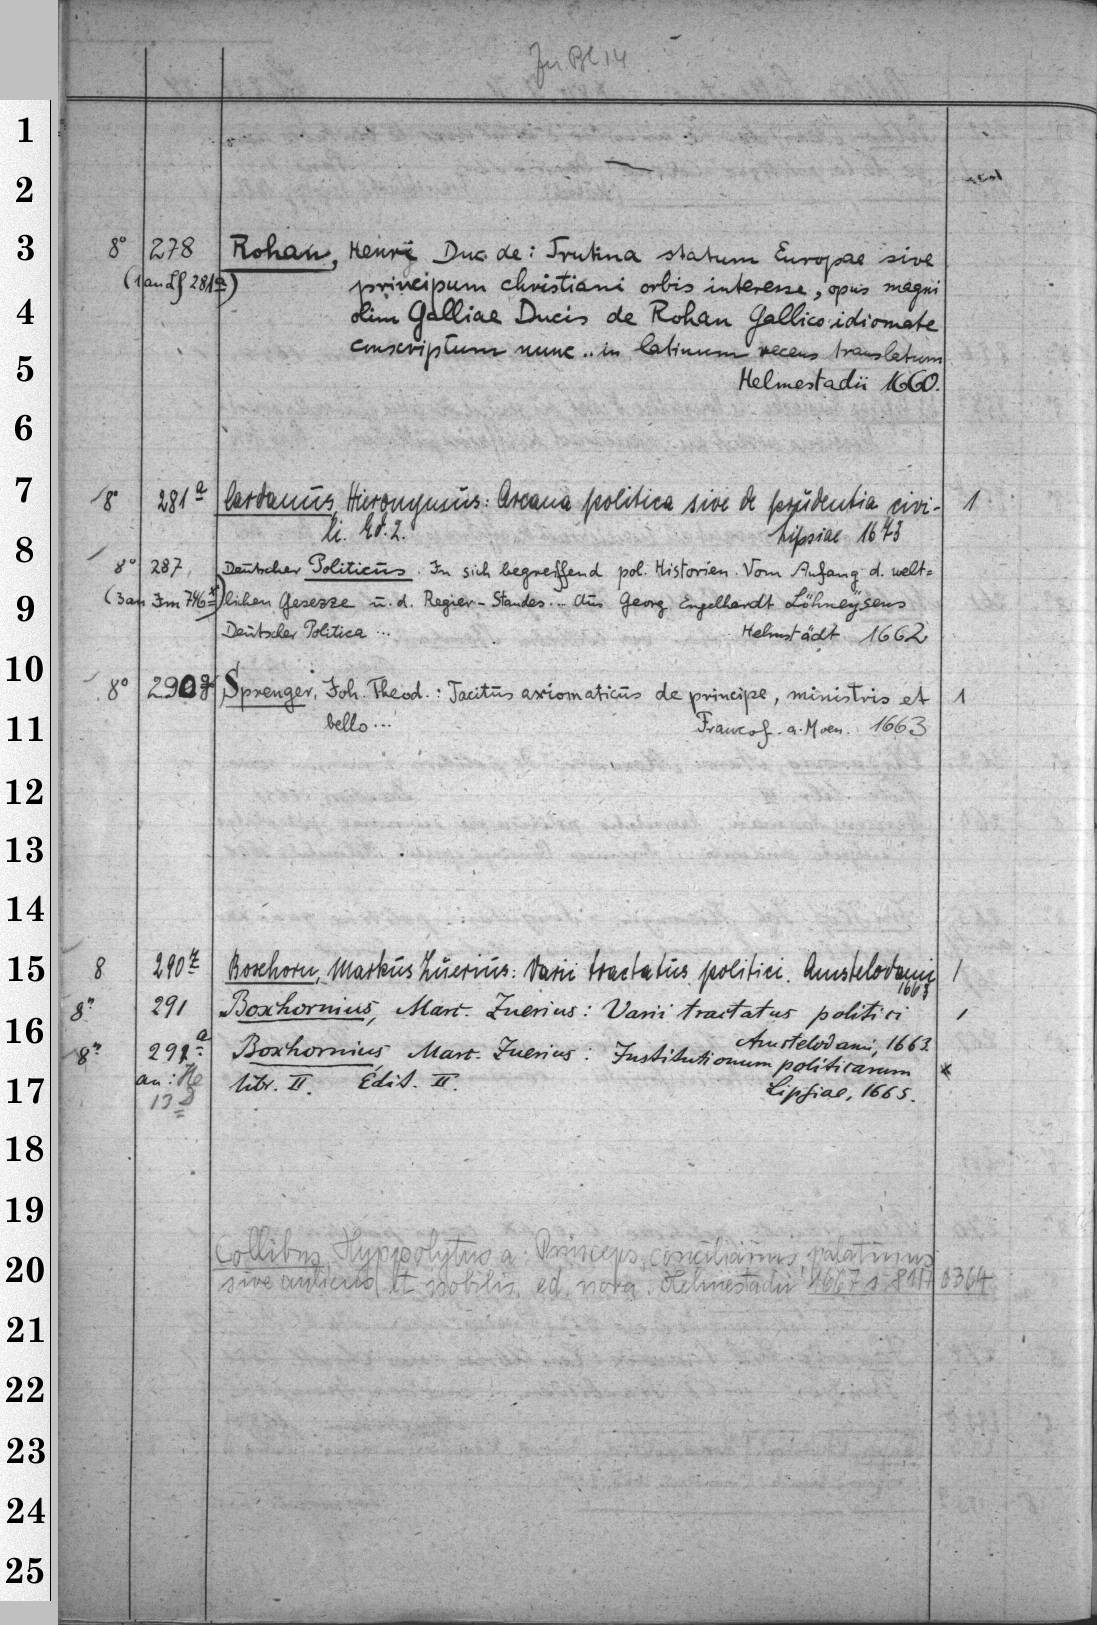 Zu Bl 14
1
2
3
8° 278 Rohan, Henri Duc de: Trutina statum Europae sive
(1 an Lf 281a) principum christiani orbis interesse, opus magni
4
olim Galliae Ducis de Rohan Gallico idiomate
conscriptum nunc .. in latinum recens translatum
5
Helmestadii 1660.
6
7
8° 281a Cardanus, Hieronymus: Arcana politica sive de prudentia civi- 1
li. Ed. 2. Lipsiae 1673
8
8° 287 Deutscher Politicus. In sich begreiffend pol. Historien. Vom Anfang d. welt=
9
(3 an Im 746) lichen Gesezze u. d. Regier-Standes ... Aus Georg Engelhardt Löhneysens
Deutscher Politica ... Helmstädt 1662
10
8° 290g Sprenger, Joh. Theod.: Tacitus axiomaticus de principe, ministris et 1
bello ... Francof. a. Moen. 1663
11
12
13
14
15
8 290z Boxhorn, Markus Zuerius: Varii tractatus politici. Amstelodami 1
1663
8° 291 Boxhornius, Marc. Zuerius: Varii tractatus politici
16
Amstelodami, 1663
8° 291a Boxhornius Marc. Zuerius: Institutionum politicarum x
17
an: libr. II. Edit. II. Lipsiae, 1665.
13
18
19
Collibus, Hyppolytus a. Princeps, consiliarius, palatinus
20
sive aulicus et nobilis. ed. nova. Helmestadii 1667 s. 8
21
22
23
24
25